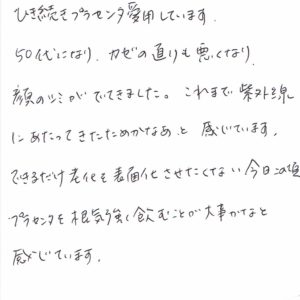 ひき続きプラセンタ愛用しています.
50代になり. カゼの直りも悪くなり.
顔のシミがでてきました。これまで紫外線
にあたってきたためかなあと 感じています.
できるだけ老化を表面化させたくない今日この頃
プラセンタを根気強く飲むことが大事かなと
感じています.